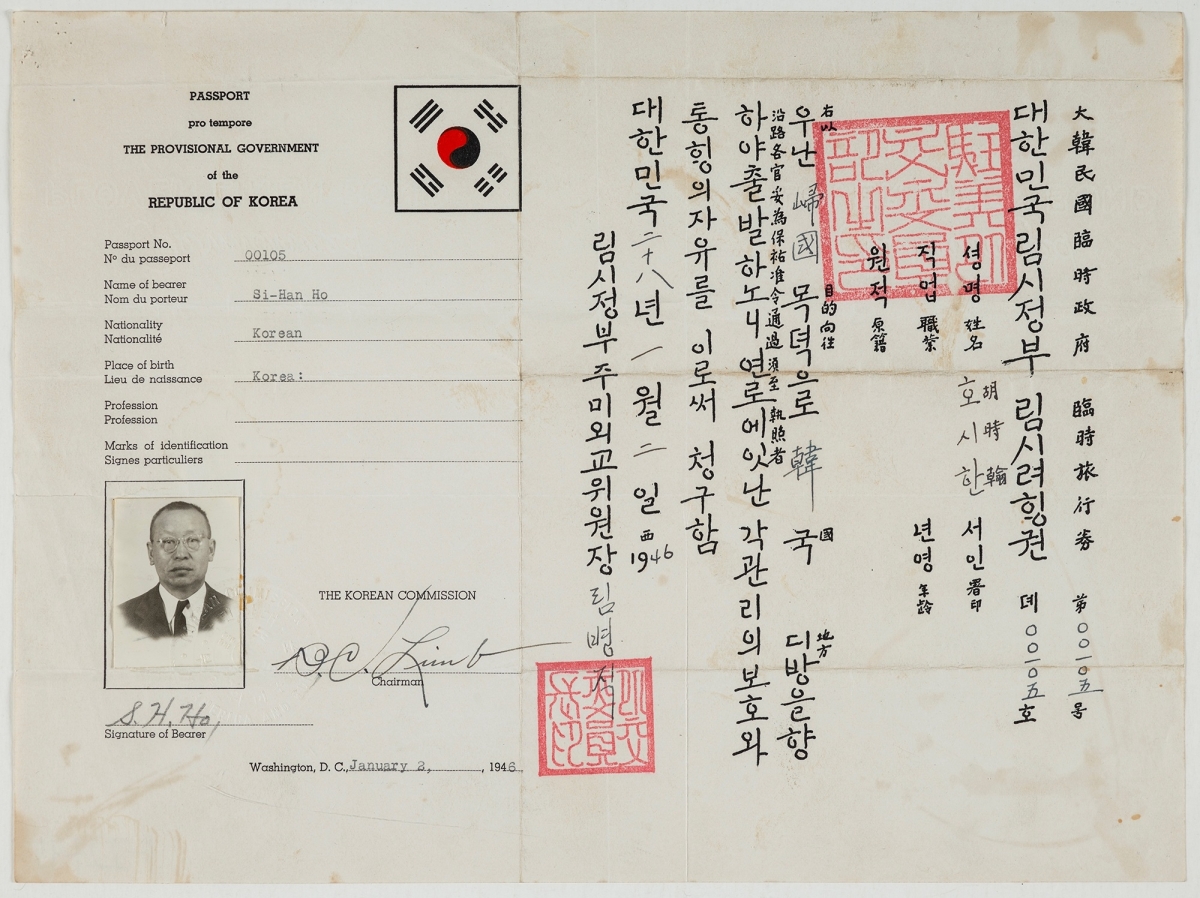 PASSPORT
pro tempore
THE PROVISIONAL GOVERNMENT
of the
REPUBLIC OF KOREA
Passport No.
Nº du passeport 00105
Name of bearer
Nom du porteur Si-Han Ho
Nationality
Nationalité Korean
Place of birth
Lieu de naissance Korea:
Profession
Profession
Marks of identification
Signes particuliers
THE KOREAN COMMISSION
D.C. Limb
Chairman
S. H. Ho,
Signature of Bearer
Washington, D. C., January 2, 1946
大韓民國臨時政府 臨時旅行券 第〇〇一〇五号
대한민국림시정부 림시려힝권 뎨〇〇一〇五호
셩명 姓名 호시한 胡時翰 서인 署印
직업 職業 년영 年齡
원적 原籍
右以 目的向往 國 地方
우난 歸國 목뎍으로 韓국 디방을향
沿路各官妥為保祐准令通過須至執照者
하야출발하노니연로에잇난 각관리의보호와
통힝의자유를 이로써 청구함
대한민국二十八年一월二일 西1946
림시정부주미외교위원장 림병직
駐美外交委員部之印
外交委員長印